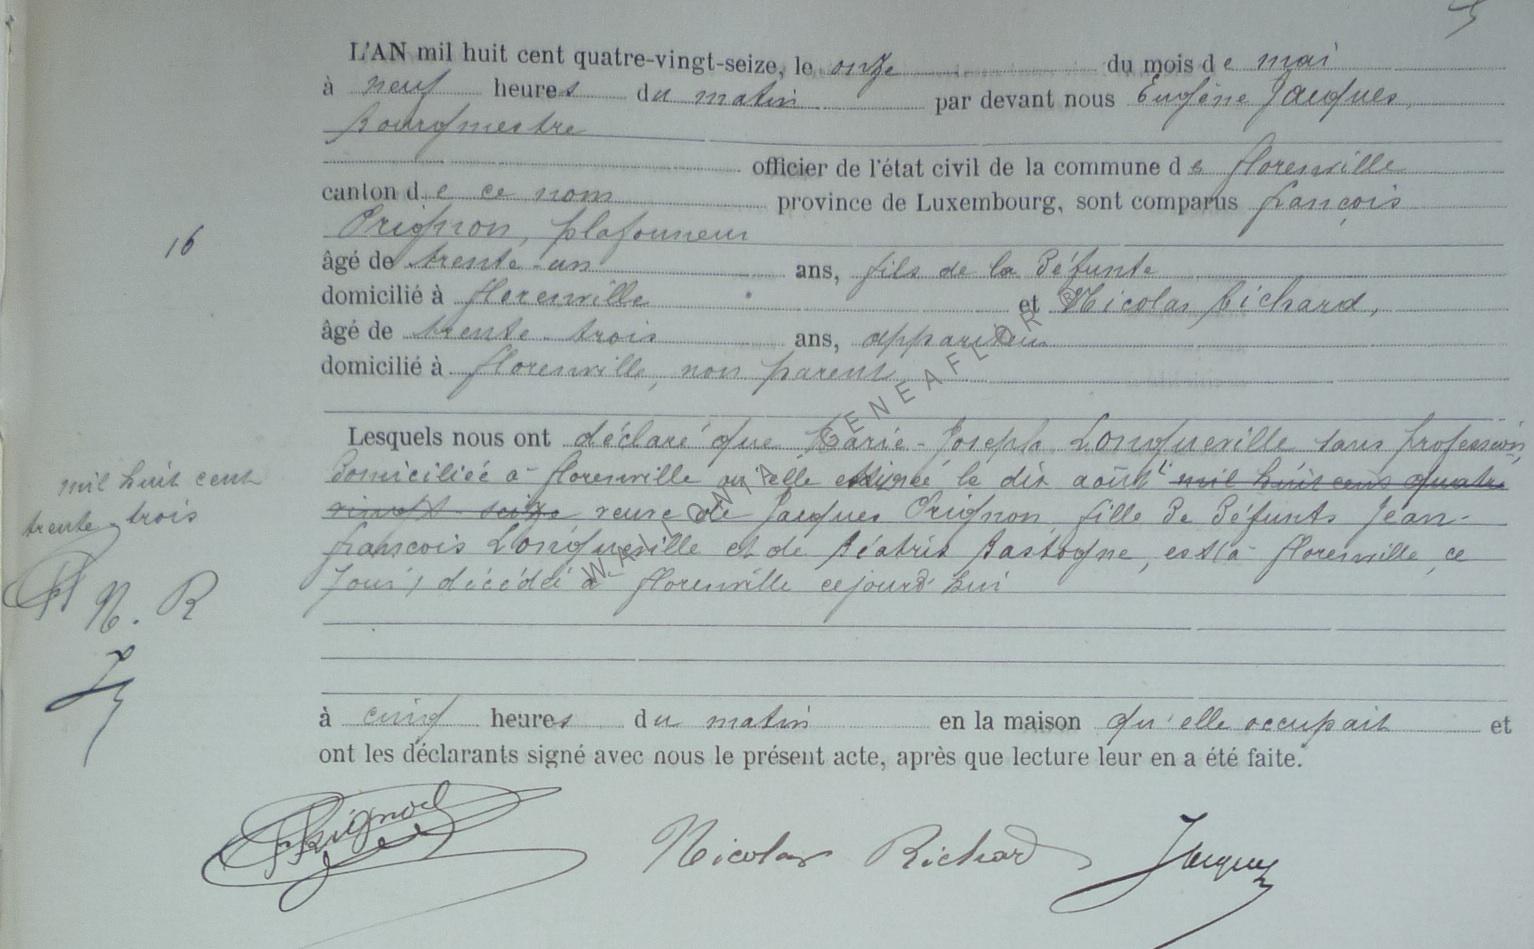 L'AN mil huit cent quatre-vingt-seize, le onze du mois de mai
à neuf heures du matin par devant nous Eugène Jacques,
Bourgmestre
officier de l'état civil de la commune de Florenville
canton de ce nom province de Luxembourg, sont comparus François
Orignon, plafonneur
16
âgé de trente-un ans, fils de la défunte
domicilié à Florenville et Nicolas Richard,
âgé de trente-trois ans, appariteur
domicilié à Florenville, non parent
Lesquels nous ont déclaré que Marie-Josèphe Longueville sans profession,
domiciliée à Florenville où elle est née le dix août mil huit cent quatre
vingt-seize veuve de Jacques Orignon, fille de défunts Jean-
François Longueville et de Béatris Bastogne, est à Florenville, ce
jour, décédée à Florenville cejourd'hui
mil huit cent
trente-trois
N. R
J
à cinq heures du matin en la maison qu'elle occupait et
ont les déclarants signé avec nous le présent acte, après que lecture leur en a été faite.
Nicolas Richard Jacques
WALLONIA GENEAFLOR ®